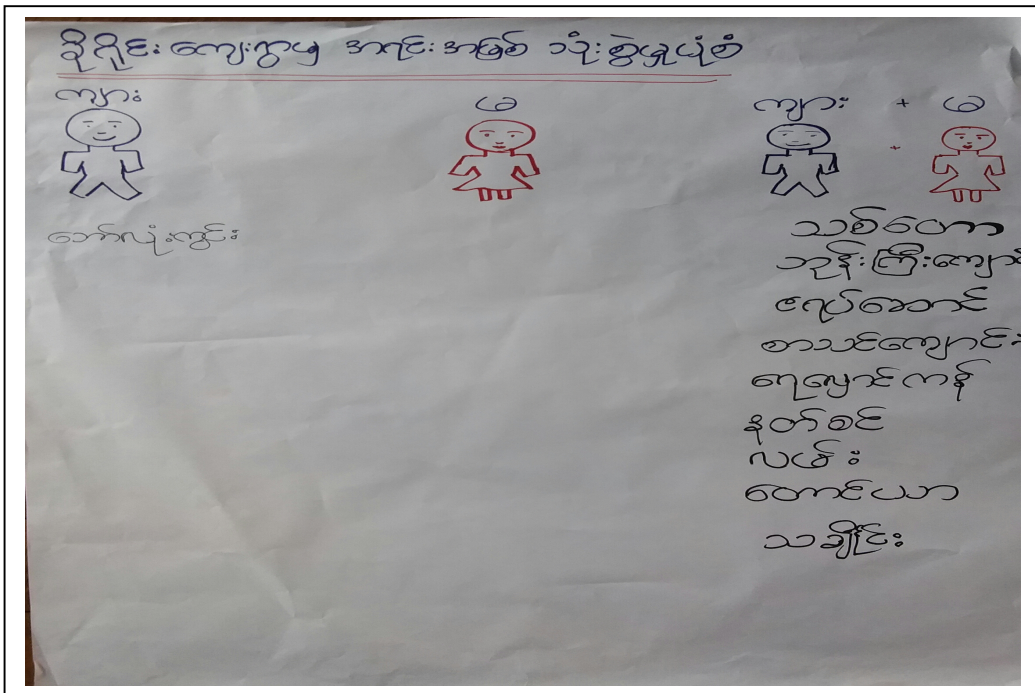 ခိုဂိုင်းကျေးရွာမှ အရင်းအမြစ် သုံးစွဲမှုပုံစံ
ကျား
မ
ကျား + မ
+
ဘော်လုံးကွင်း
သစ်တော
ဘုန်းကြီးကျောင်
ဇရပ်ဆောင်
စာသင်ကျောင်း
ရေလှောင်ကန်
နတ်စင်
လမ်း
တောင်ယာ
သချိုင်း